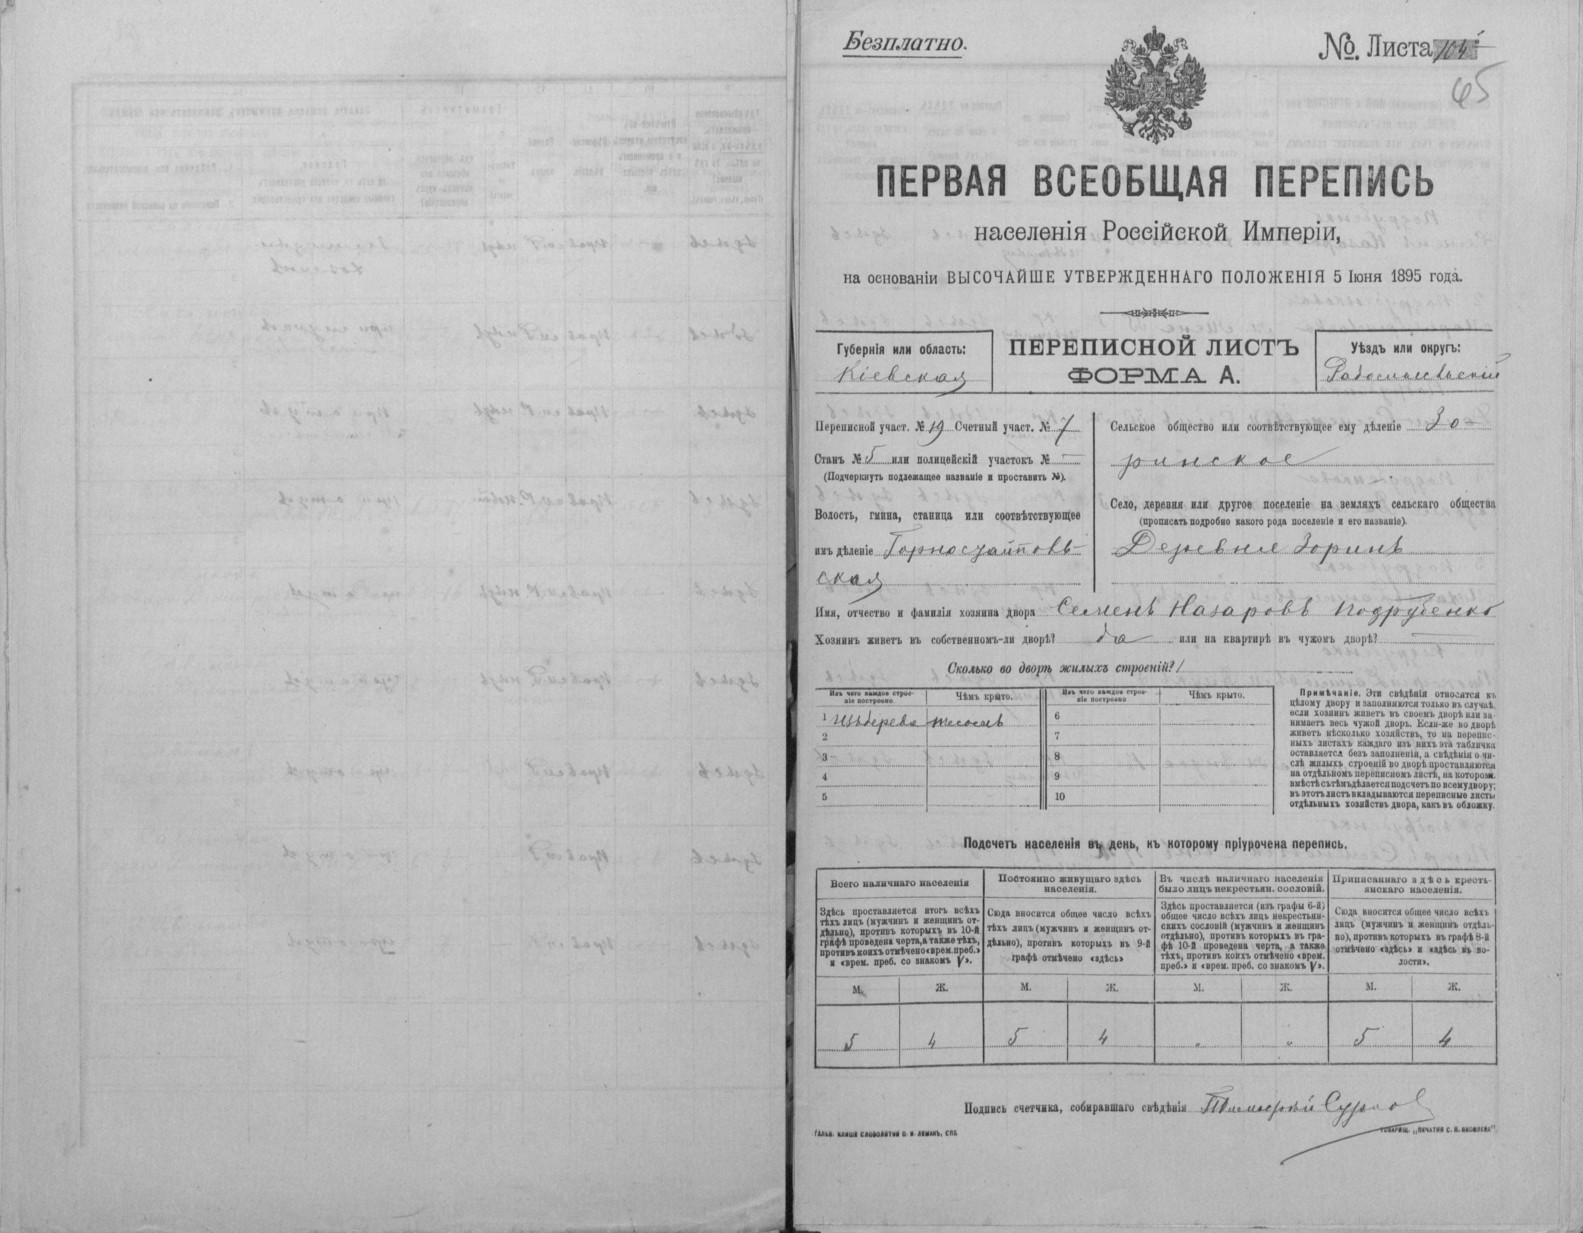 Безплатно.
№. Листа 104
65
ПЕРВАЯ ВСЕОБЩАЯ ПЕРЕПИСЬ
населенія Россійской Имперіи,
на основаніи ВЫСОЧАЙШЕ УТВЕРЖДЕННАГО ПОЛОЖЕНІЯ 5 Іюня 1895 года.
Губернія или область:
Кіевская
ПЕРЕПИСНОЙ ЛИСТЪ
ФОРМА А.
Уѣздъ или округъ:
Радомысльскій
Переписной участ. № 19 Счетный участ. № 7
Станъ № 5 или полицейскій участокъ № —
(Подчеркнуть подлежащее названіе и проставить №).
Волость, гмина, станица или соотвѣтствующее
имъ дѣленіе Горностайпов-
ская
Сельское общество или соотвѣтствующее ему дѣленіе Зо-
ринское
Село, деревня или другое поселеніе на земляхъ сельскаго общества
(прописать подробно какого рода поселеніе и его названіе).
Деревня Зоринъ
Имя, отчество и фамилія хозяина двора Семенъ Назаровъ Подрубенко
Хозяинъ живетъ въ собственномъ-ли дворѣ? да или на квартирѣ въ чужомъ дворѣ? —
Сколько во дворѣ жилыхъ строеній? 1
Изъ чего каждое строеніе построено
Чѣмъ крыто.
Изъ чего каждое строеніе построено
Чѣмъ крыто.
1 Изъ дерева тесомъ
2
3
4
5
6
7
8
9
10
Примѣчаніе. Эти свѣдѣнія относятся къ
цѣлому двору и заполняются только въ случаѣ,
если хозяинъ живетъ въ своемъ дворѣ или за-
нимаетъ весь чужой дворъ. Если-же во дворѣ
живетъ нѣсколько хозяйствъ, то на перепис-
ныхъ листахъ каждаго изъ нихъ эта табличка
оставляется безъ заполненія, а свѣдѣнія о чи-
слѣ жилыхъ строеній во дворѣ проставляются
на отдѣльномъ переписномъ листѣ, на которомъ
вмѣстѣ съ тѣмъ дѣлается подсчетъ по всему двору;
въ этотъ листъ вкладываются переписные листы
отдѣльныхъ хозяйствъ двора, какъ въ обложку.
Подсчетъ населенія въ день, къ которому пріурочена перепись.
Всего наличнаго населенія
Здѣсь проставляется итогъ всѣхъ
тѣхъ лицъ (мужчинъ и женщинъ от-
дѣльно), противъ которыхъ въ 10-й
графѣ проведена черта, а также тѣхъ,
противъ коихъ отмѣчено «врем. преб.»
и «врем. преб. со знакомъ V».
Постоянно живущаго здѣсь
населенія.
Сюда вносится общее число всѣхъ
тѣхъ лицъ (мужчинъ и женщинъ от-
дѣльно), противъ которыхъ въ 9-й
графѣ отмѣчено «здѣсь»
Въ числѣ наличнаго населенія
было лицъ некрестьян. сословій.
Здѣсь проставляется (изъ графы 6-й)
общее число всѣхъ лицъ некрестьян-
скихъ сословій (мужчинъ и женщинъ
отдѣльно), противъ которыхъ въ гра-
фѣ 10-й проведена черта, а также
тѣхъ, противъ коихъ отмѣчено «врем.
преб.» и «врем. преб. со знакомъ V».
Приписаннаго здѣсь кресть-
янскаго населенія.
Сюда вносится общее число всѣхъ
лицъ (мужчинъ и женщинъ отдѣль-
но), противъ которыхъ въ графѣ 8-й
отмѣчено «здѣсь» и «здѣсь въ во-
лости».
М. Ж. М. Ж. М. Ж. М. Ж.
5 4 5 4 „ „ 5 4
Подпись счетчика, собиравшаго свѣдѣнія
ГАЛЬВ. КЛИШЕ СЛОВОЛИТНИ О. И. ЛЕМАНЪ, СПБ.
ТОВАРИЩ. „ПЕЧАТНЯ С. П. ЯКОВЛЕВА“.